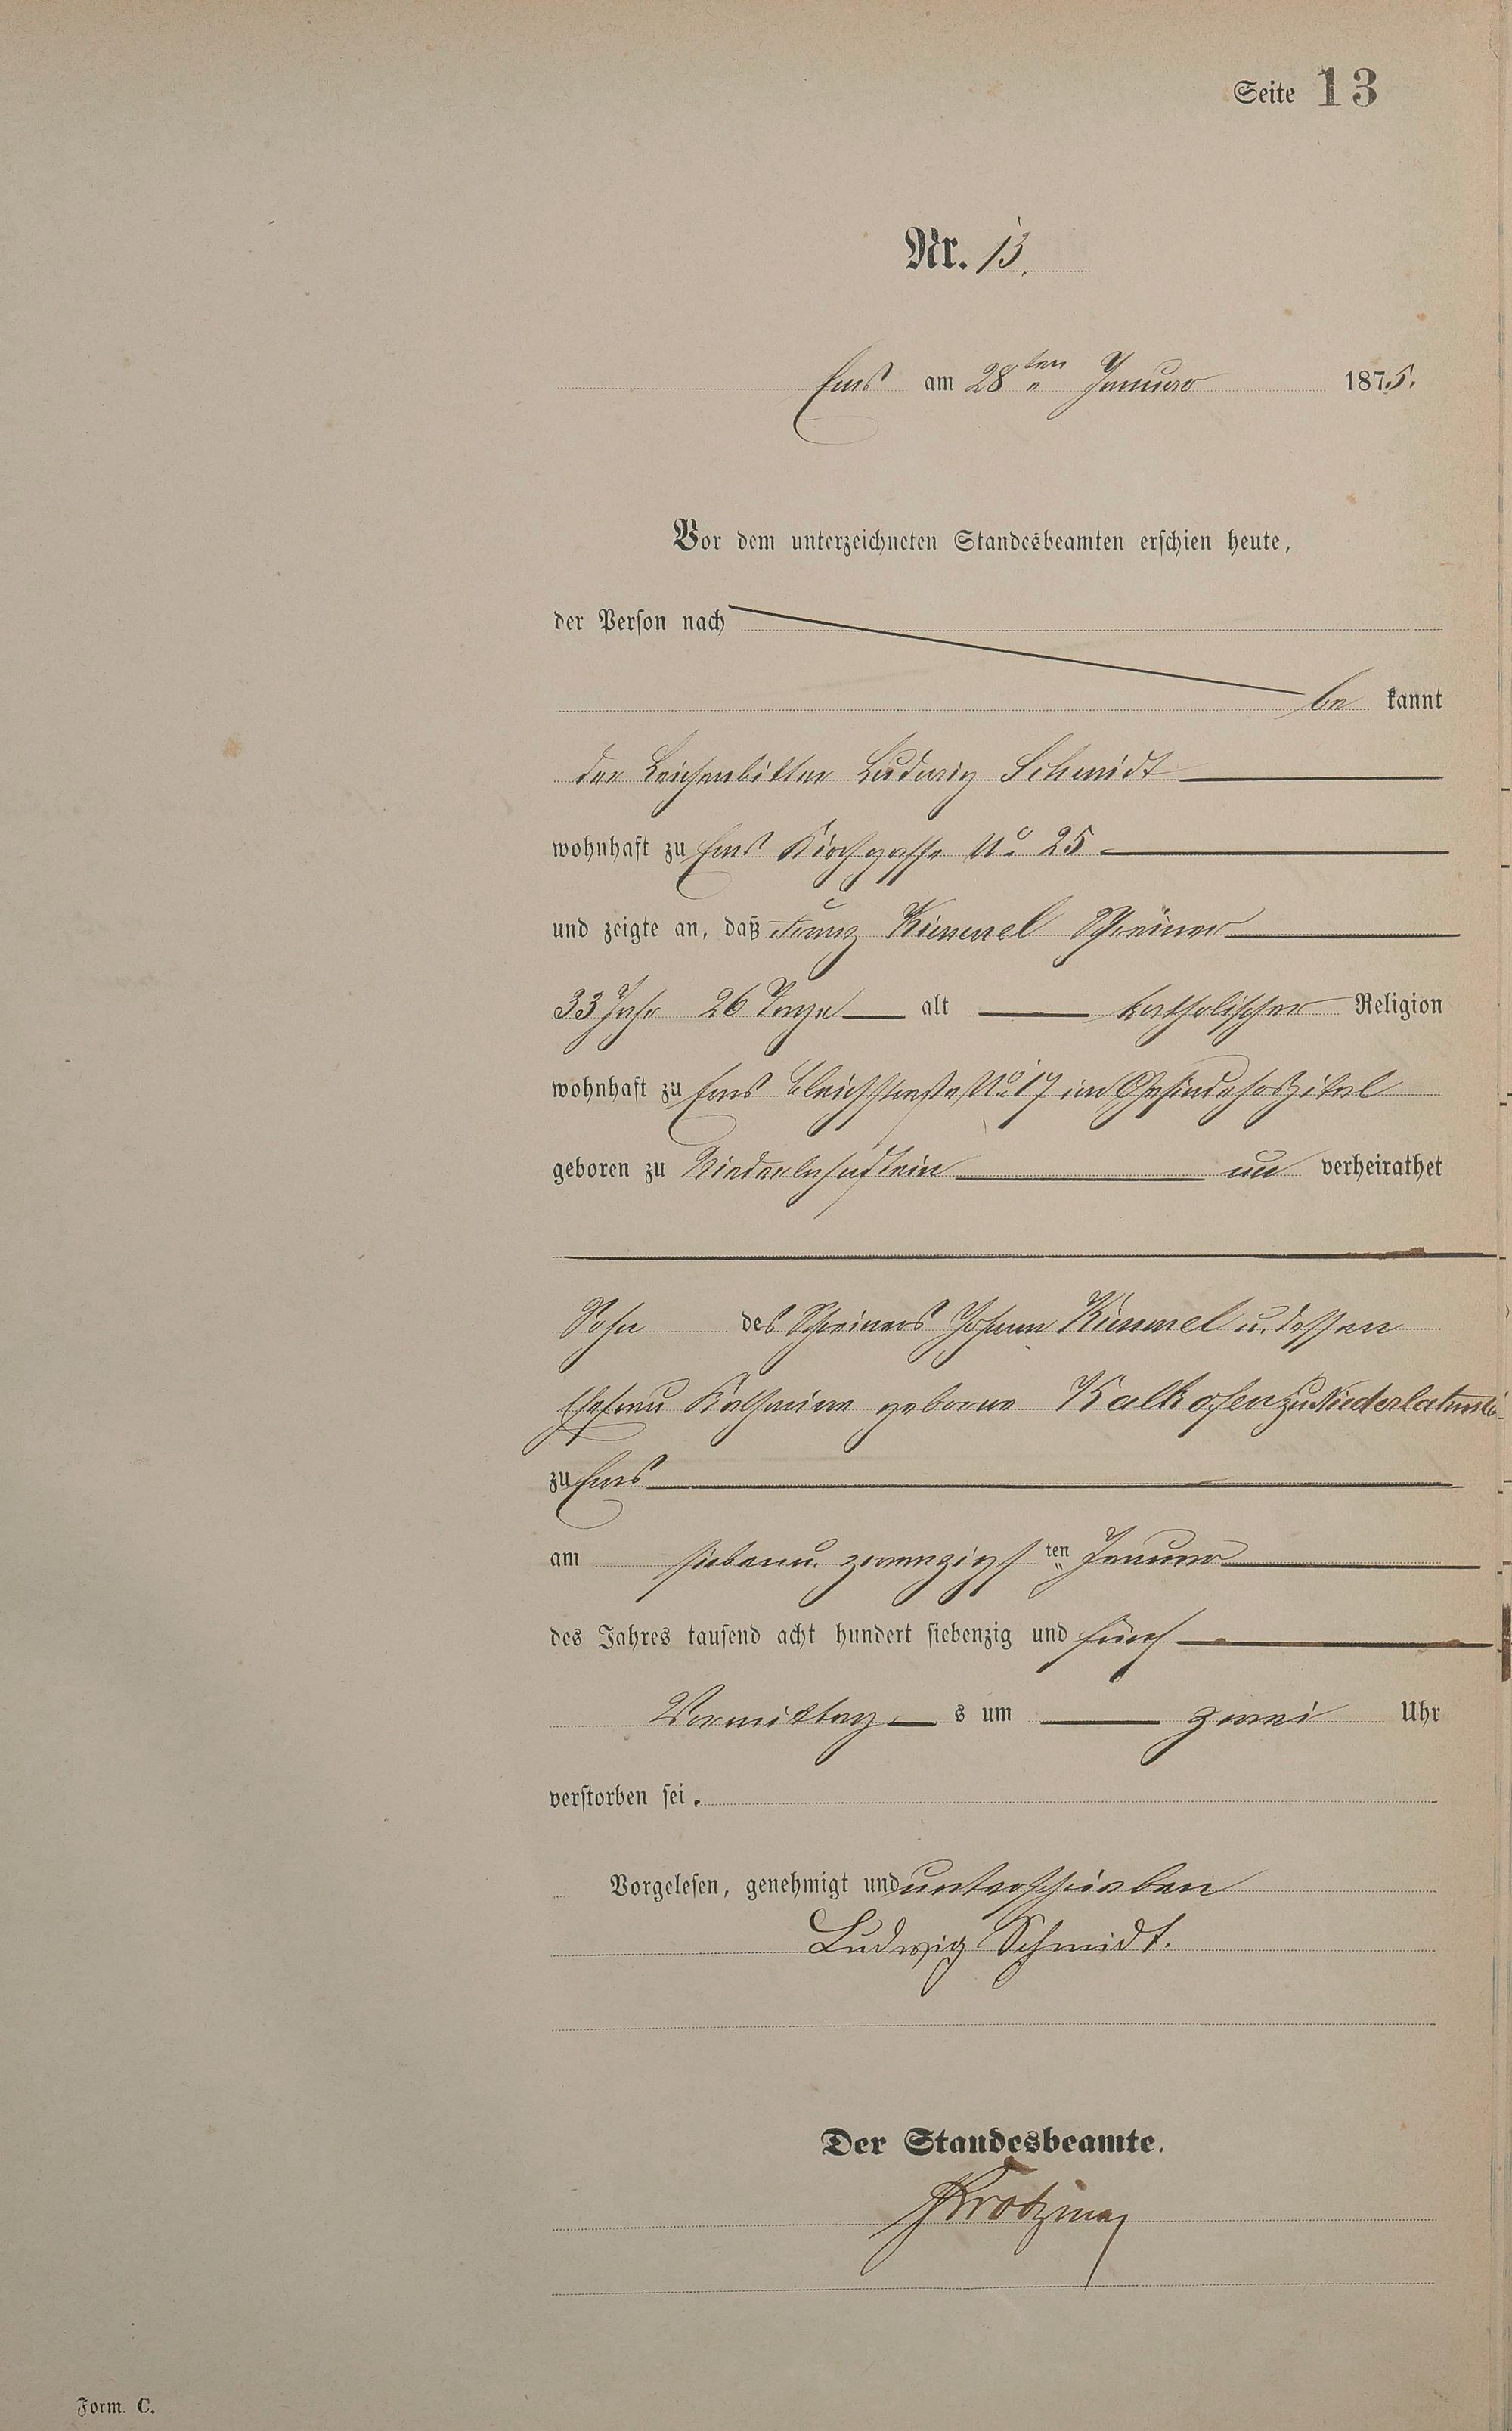 Seite 13
Nr. 13.
Ems am 28ten Januar 1875.
Vor dem unterzeichneten Standesbeamten erschien heute,
der Person nach
be kannt
der Leichenbitter Ludwig Schmidt
wohnhaft zu Ems Kirchgasse No 25
und zeigte an, daß Franz Kimmel Schreiner
33 Jahr 26 Tage alt katholischer Religion
wohnhaft zu Ems Bleichstraße No 17 im Gesindehospital
geboren zu Niederlahnstein un verheirathet
Sohn des Schreiners Johann Kimmel u. dessen
Ehefrau Katharina geborne Kalkofen zu Niederlahnst
zu Ems
am siebenu. zwanzigsten Januar
des Jahres tausend acht hundert siebenzig und fünf
Vormittag s um zwei Uhr
verstorben sei.
Vorgelesen, genehmigt und unterschrieben
Ludwig Schmidt.
Der Standesbeamte.
Form. C.